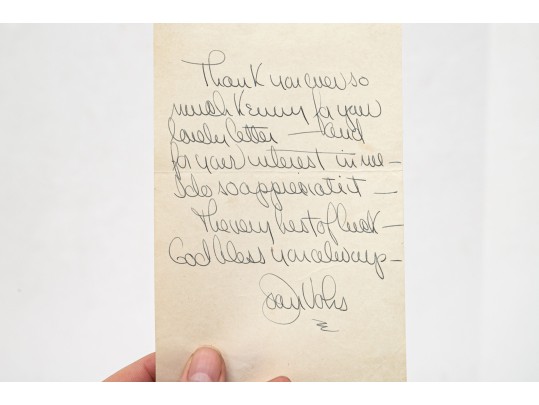 Thank you ever so
much Kenny for your
lovely letter — and
for your interest in me —
I do so appreciate it —
The very best of luck —
God bless you always —
Joan Vohs